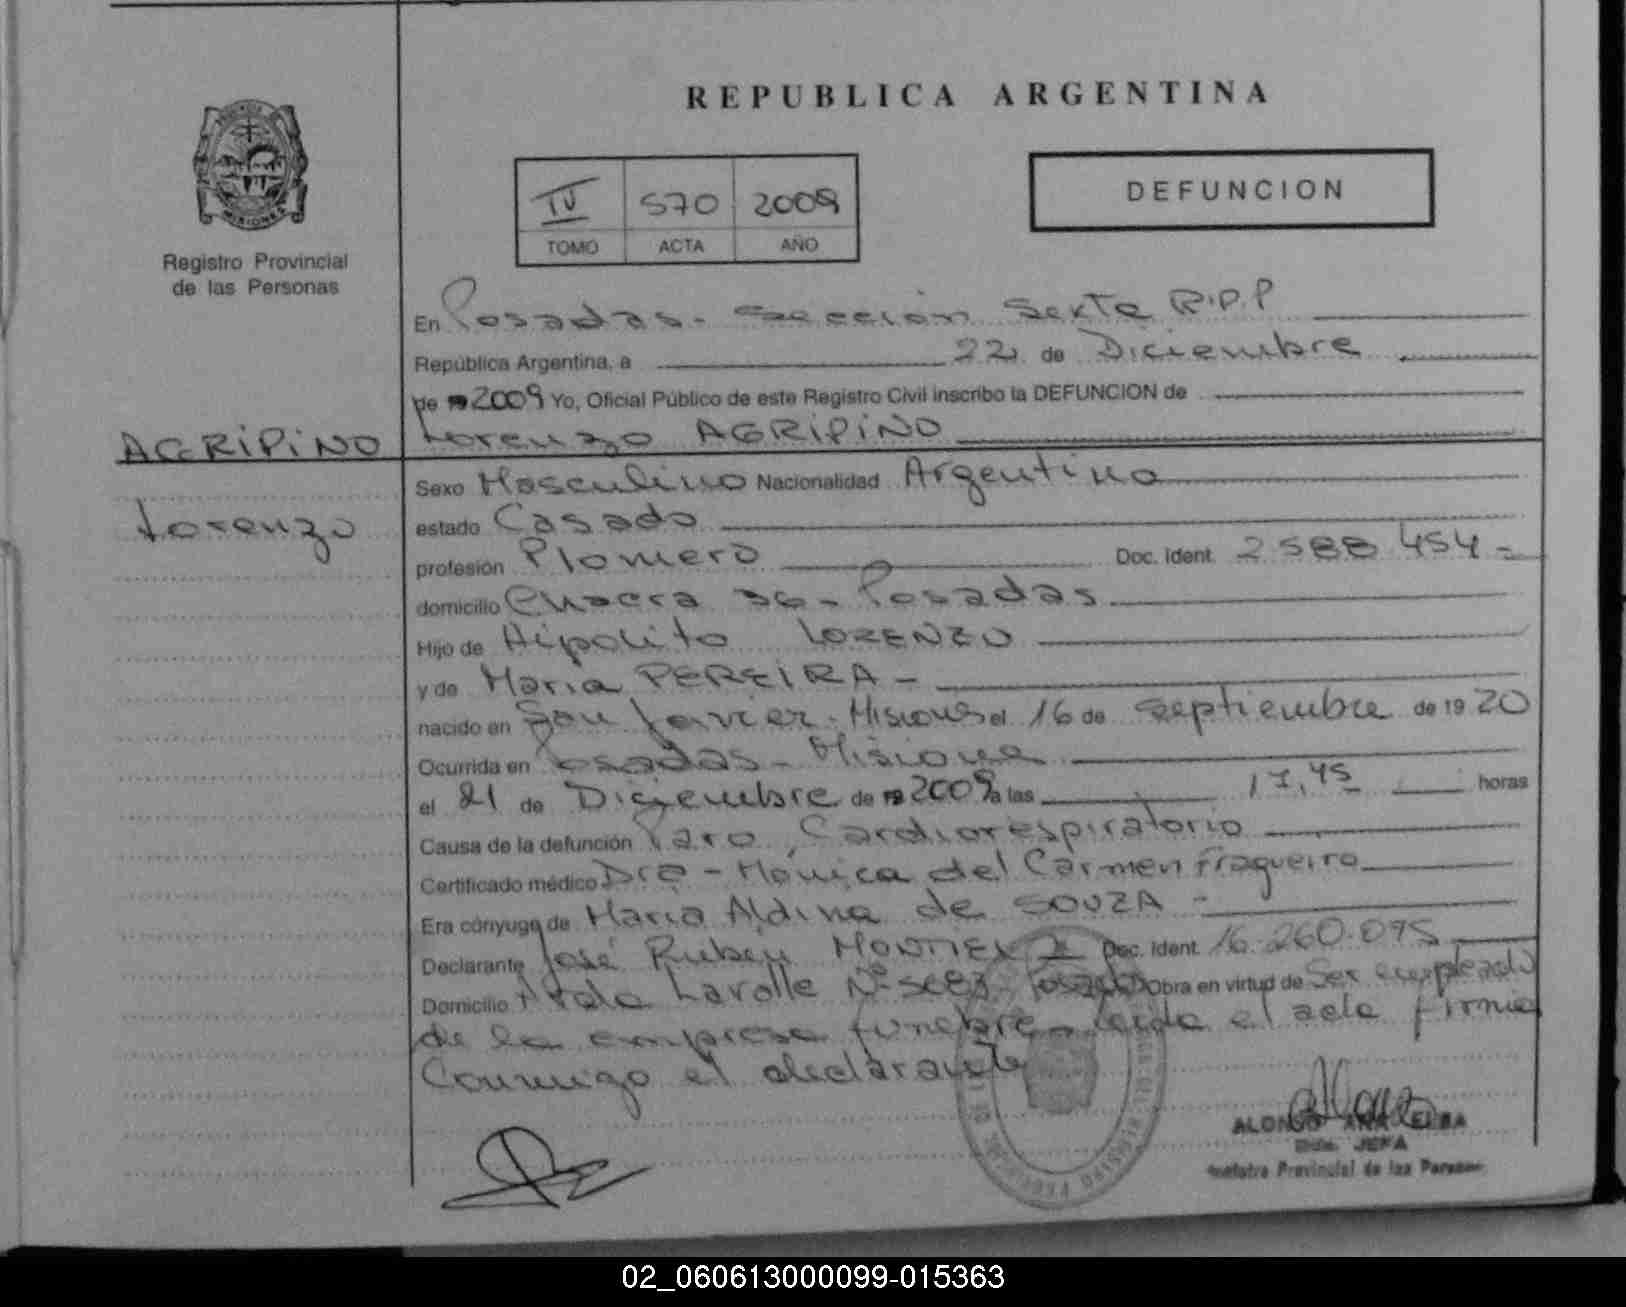 REPUBLICA ARGENTINA
MISIONES
Registro Provincial
de las Personas
IV 570 2009
TOMO ACTA AÑO
DEFUNCION
En Posadas - Sección Sexta R.P.P
República Argentina, a 22 de Diciembre
de 2009 Yo, Oficial Público de este Registro Civil inscribo la DEFUNCION de
AGRIPINO
Lorenzo AGRIPINO
Lorenzo
Sexo Masculino Nacionalidad Argentino
estado Casado
profesión Plomero Doc. Ident. 2588 454 -
domicilio Chacra 36 - Posadas
Hijo de Hipolito LORENZO
y de Maria PEREIRA -
nacido en San Javier - Misiones el 16 de Septiembre de 19 20
Ocurrida en Posadas - Misiones
el 21 de Diciembre de 2009 a las 17,45 horas
Causa de la defunción Paro Cardiorespiratorio
Certificado médico Dra - Mónica del Carmen Fragueiro
Era cónyuge de Maria Aldina de SOUZA -
Declarante José Ruben Doc. Ident. 16.260.075
Domicilio Avda Lavalle Nº Posadas Obra en virtud de Ser empleado
de la empresa funebre - leida el acta firma
Conmigo el declarante
ALONSO ANA ELBA
JEFA
Registro Provincial de las Personas
02_060613000099-015363